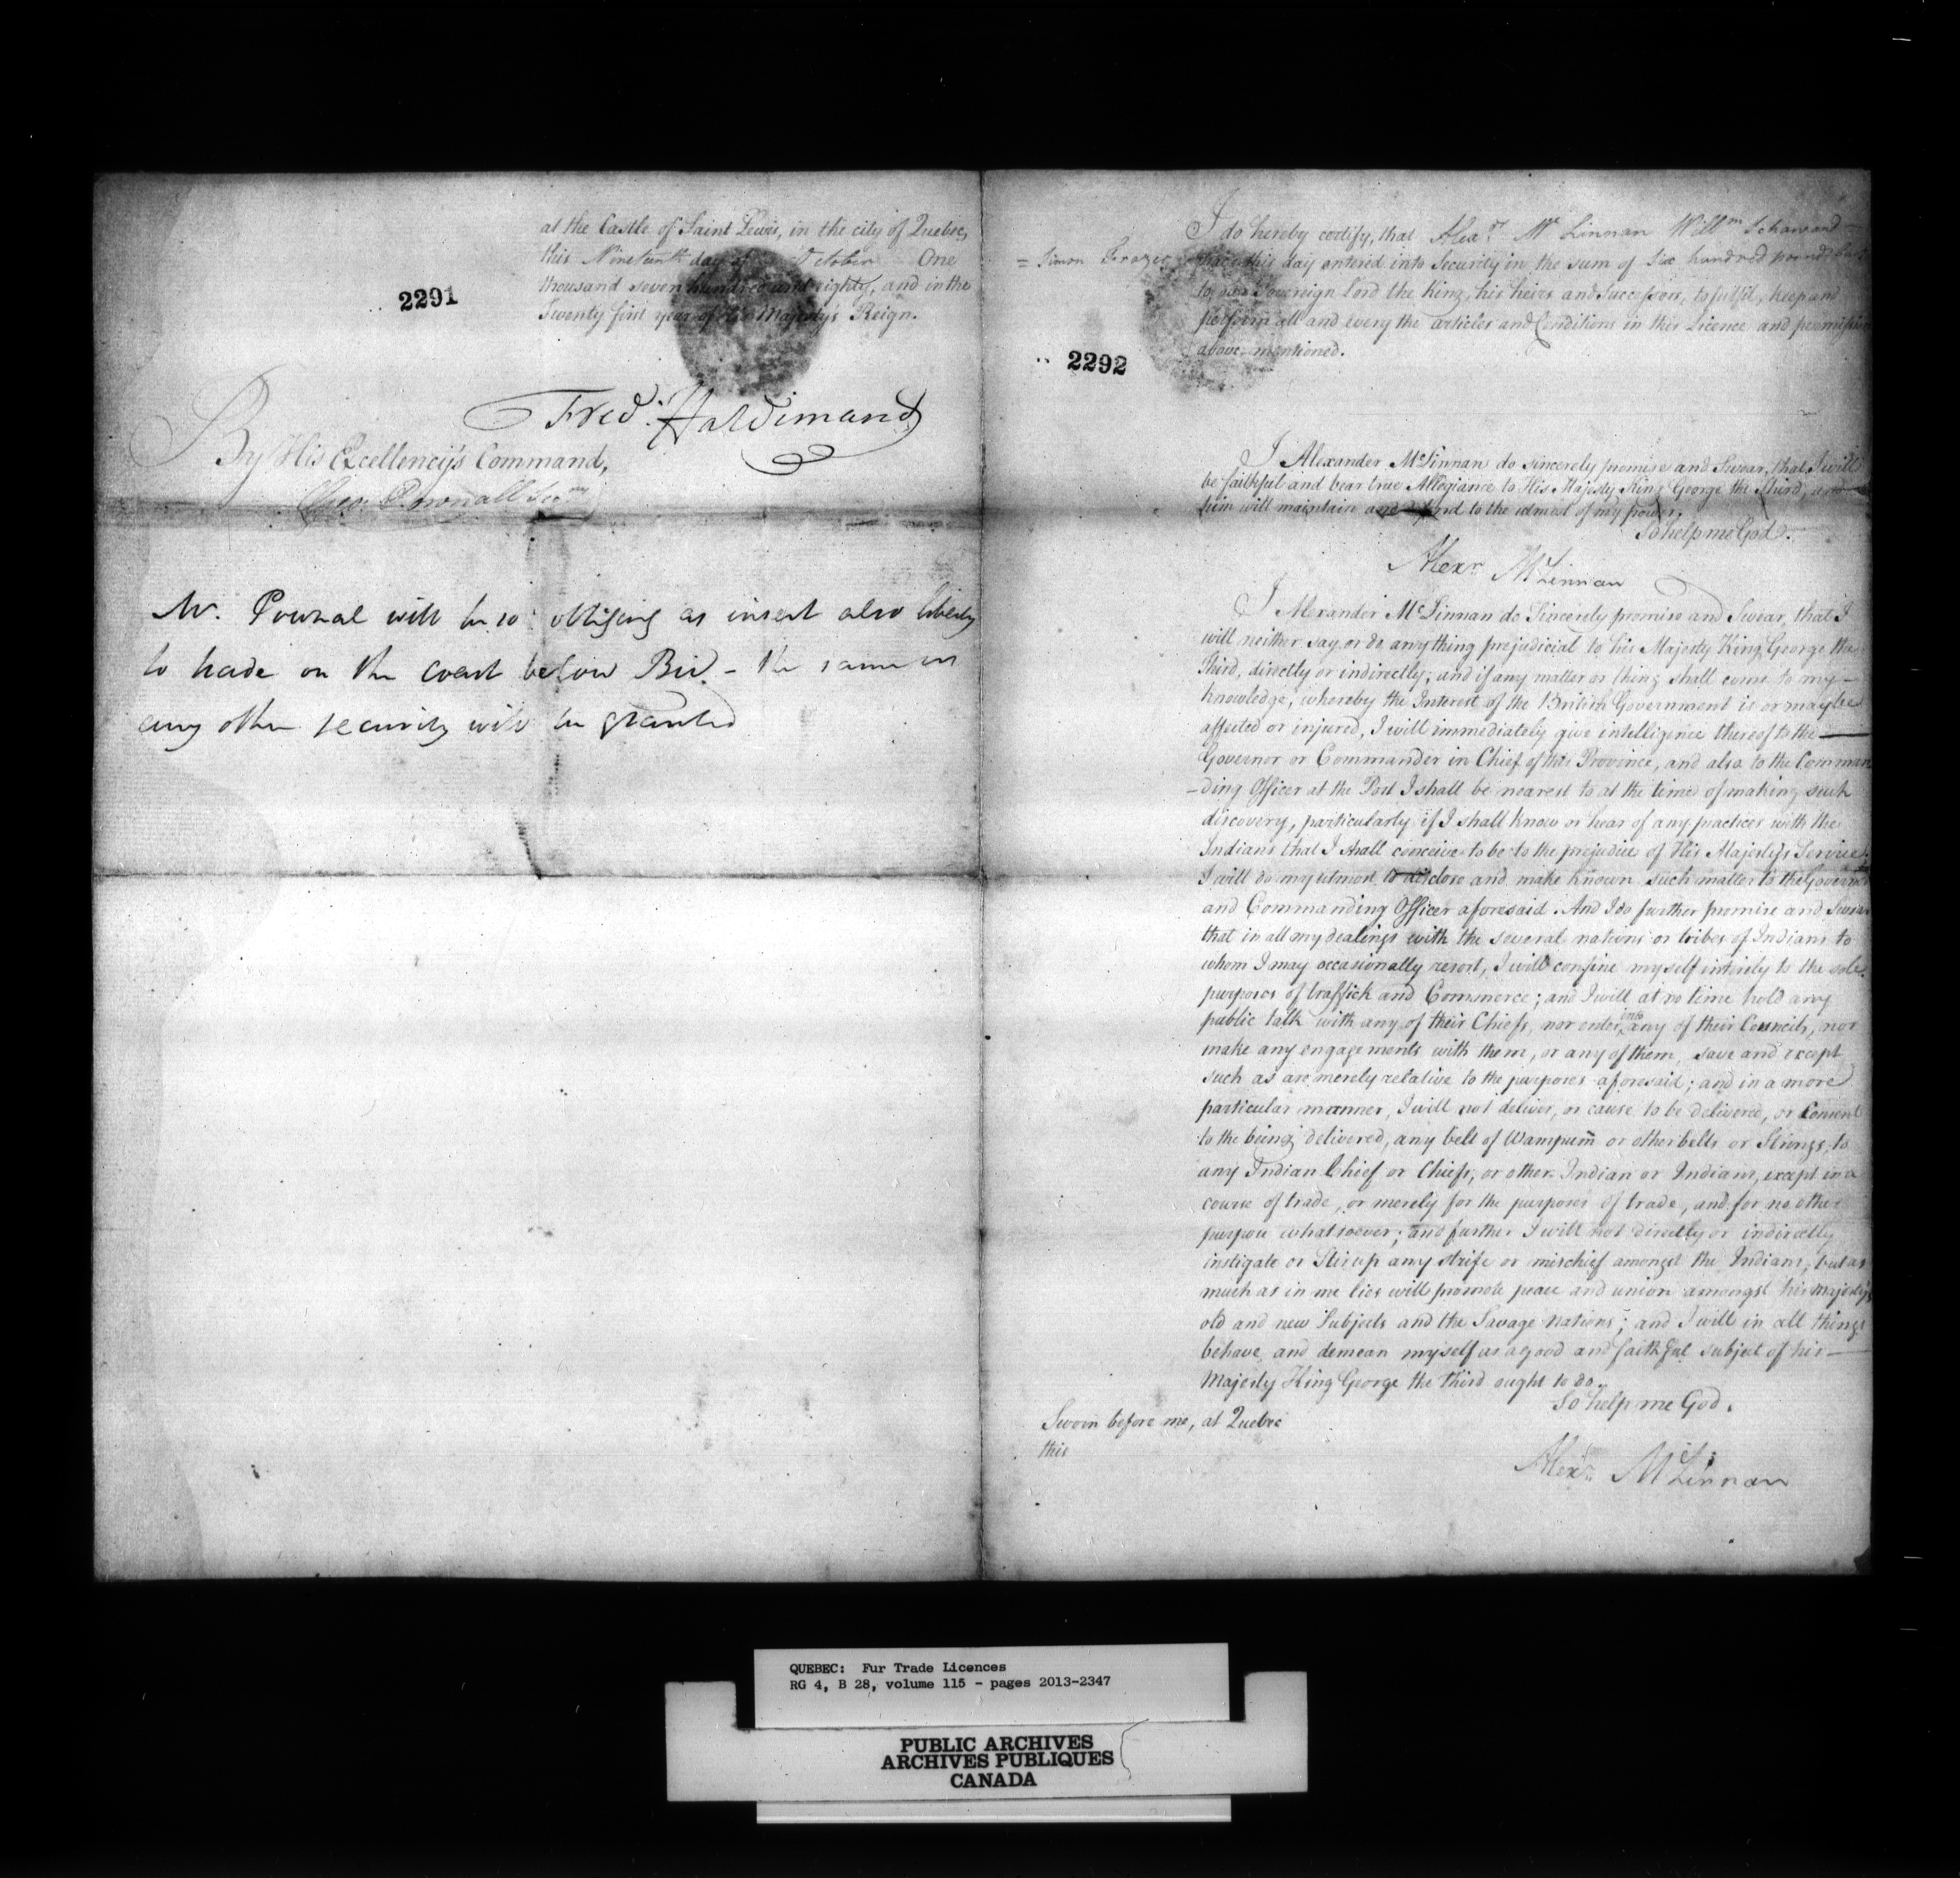 at the Castle of Saint Lewis, in the city of Quebec,
this Nineteenth day of October One
thousand seven hundred and eighty, and in the
Twenty first year of His Majesty's Reign.
2291
Fred: Haldimand
By His Excellency's Command,
Geo: Pownall Secry
Mr. Pownal will be so obliging as insert also liberty
to trade on the coast below Bic - the same or
any other security will be granted
I do hereby certify, that Alexr. Mc Linnan Willm
= Simon Frazer have this day entered into Security in the sum of Six hundred pounds
to our Sovereign Lord the King, his heirs and Successors, to fulfil, keep and
perform all and every the articles and Conditions in this Licence and permission
above-mentioned.
2292
I Alexander McLinnan do sincerely promise and Swear, that I will
be faithful and bear true Allegiance to His Majesty King George the Third, and
him will maintain and defend to the utmost of my power,
So help me God.
Alexr. McLinnan
I Alexander McLinnan do Sincerely promise and Swear, that I
will neither say or do anything prejudicial to his Majesty King George the
Third, directly or indirectly; and if any matter or thing shall come to my
knowledge, whereby the Interest of the British Government is or may be
affected or injured, I will immediately give intelligence thereof to the
Governor or Commander in Chief of this Province, and also to the Comman
-ding Officer at the Post I shall be nearest to at the time of making such
discovery, particularly if I shall know or hear of any practices with the
Indians that I shall conceive to be to the prejudice of His Majesty's Service,
I will do my utmost to disclose and make known such matter to the Governor
and Commanding Officer aforesaid. And I do further promise and Swear
that in all my dealings with the several nations or tribes of Indians to
whom I may occasionally resort, I will confine myself intirely to the sole
purposes of traffick and Commerce; and I will at no time hold any
public talk with any of their Chiefs, nor enter into any of their Councils, nor
make any engagements with them, or any of them, save and except
such as are merely relative to the purposes aforesaid; and in a more
particular manner, I will not deliver, or cause to be delivered, or Consent
to the being delivered, any belt of Wampum or other belts or Strings, to
any Indian Chief or Chiefs, or other Indian or Indians, except in a
course of trade, or merely for the purposes of trade, and for no other
purpose whatsoever; and further I will not directly or indirectly
instigate or Stir up any strife or mischief amongst the Indians, but as
much as in me lies will promote peace and union amongst his Majesty's
old and new Subjects and the Savage nations; and I will in all things
behave and demean myself as a good and faithful subject of his
Majesty King George the third ought to do.
So help me God.
Sworn before me, at Quebec
this
Alexr. McLinnan
QUEBEC: Fur Trade Licences
RG 4, B 28, volume 115 - pages 2013-2347
PUBLIC ARCHIVES
ARCHIVES PUBLIQUES
CANADA